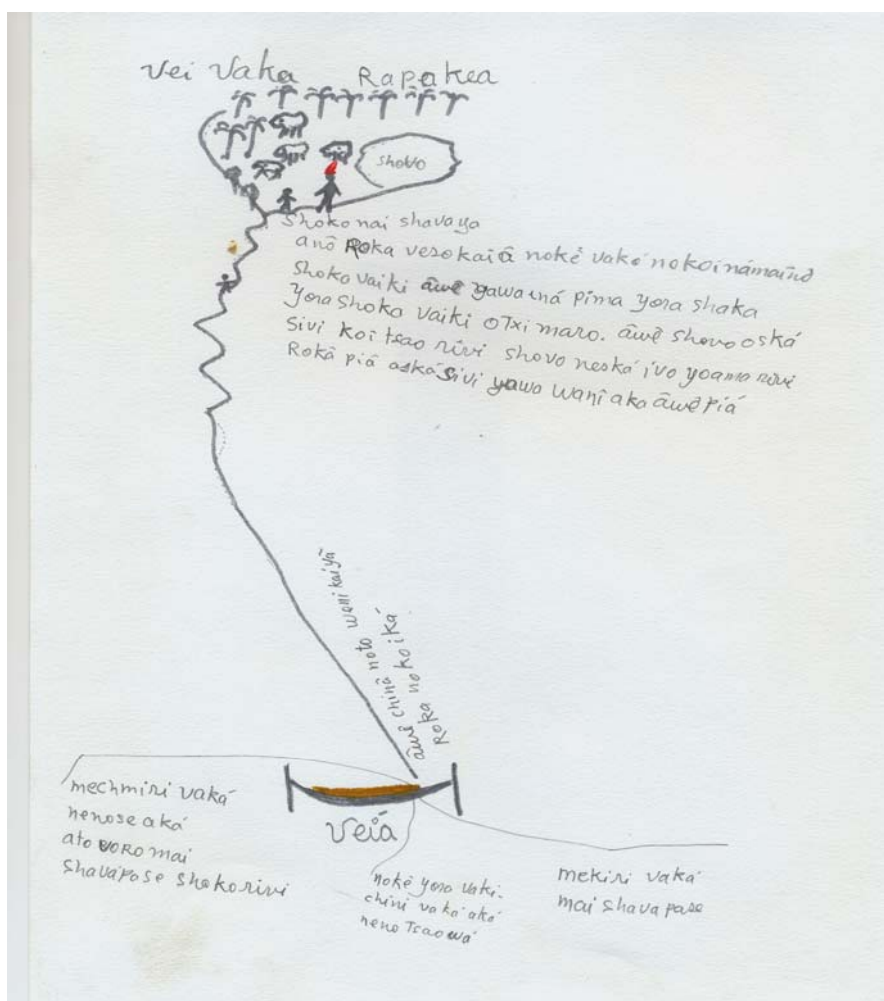 Vei Vaka Rapakea
shovo
Shoko nai shavaya
anô Roka vesokaiã nokẽ vaká nokoinámaĩnõ
Shoko vaiki ãwẽ yawa iná pima yora shaka
Yora shoka vaiki otxi maro. ãwẽ shovo oská
Sivi koĩ tsao rivi shovo neská ivo yoama rivi
Rokã piá aská sivi yawa wanĩ ako ãwẽ piá
ãwẽ chinã noto wani kaiyã
Roka nokoiká
Veiá
mechmiri vaká
nenose aká
ato voro mai
Shavápase shokorivi
nokẽ yora vaki.
chini vaká aká
neno Tsaowá
mekiri vaká
mai shava pase